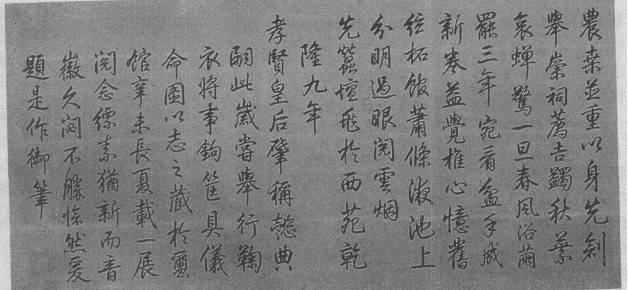 農桒並重以身先創
舉崇祠薦吉蠲秋葉
哀蟬驚一旦春風浴繭
罷三年宛看盆手成
新卷益覺椎心憶舊
絃柘館蕭條液池上
分明過眼閱雲烟
先蠶壇於西苑乾
隆九年
孝賢皇后肇稱懿典
嗣此歲嘗舉行鞠
衣將事鉤筐具儀
命圖以志之藏於蠶
館辛未長夏載一展
閱念縹素猶新而音
徽久閟不勝愴然爰
題是作御筆